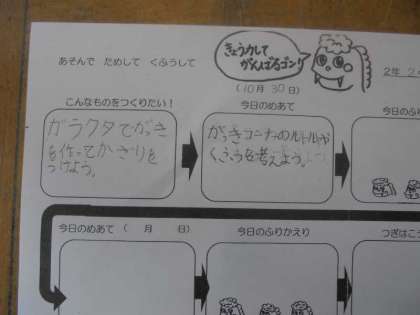 あそんで ためして くふうして
きょう力して
がんばるゴン!!
(10月 30日)
2年 2
こんなものをつくりたい!
今日のめあて
今日のふり
ガラクタでがっき
を作ってかざりを
つけよう。
がっきコーナーのルールや
くふうを考えよう。
今日のめあて ( 月 日)
今日のふりかえり
つぎはこ